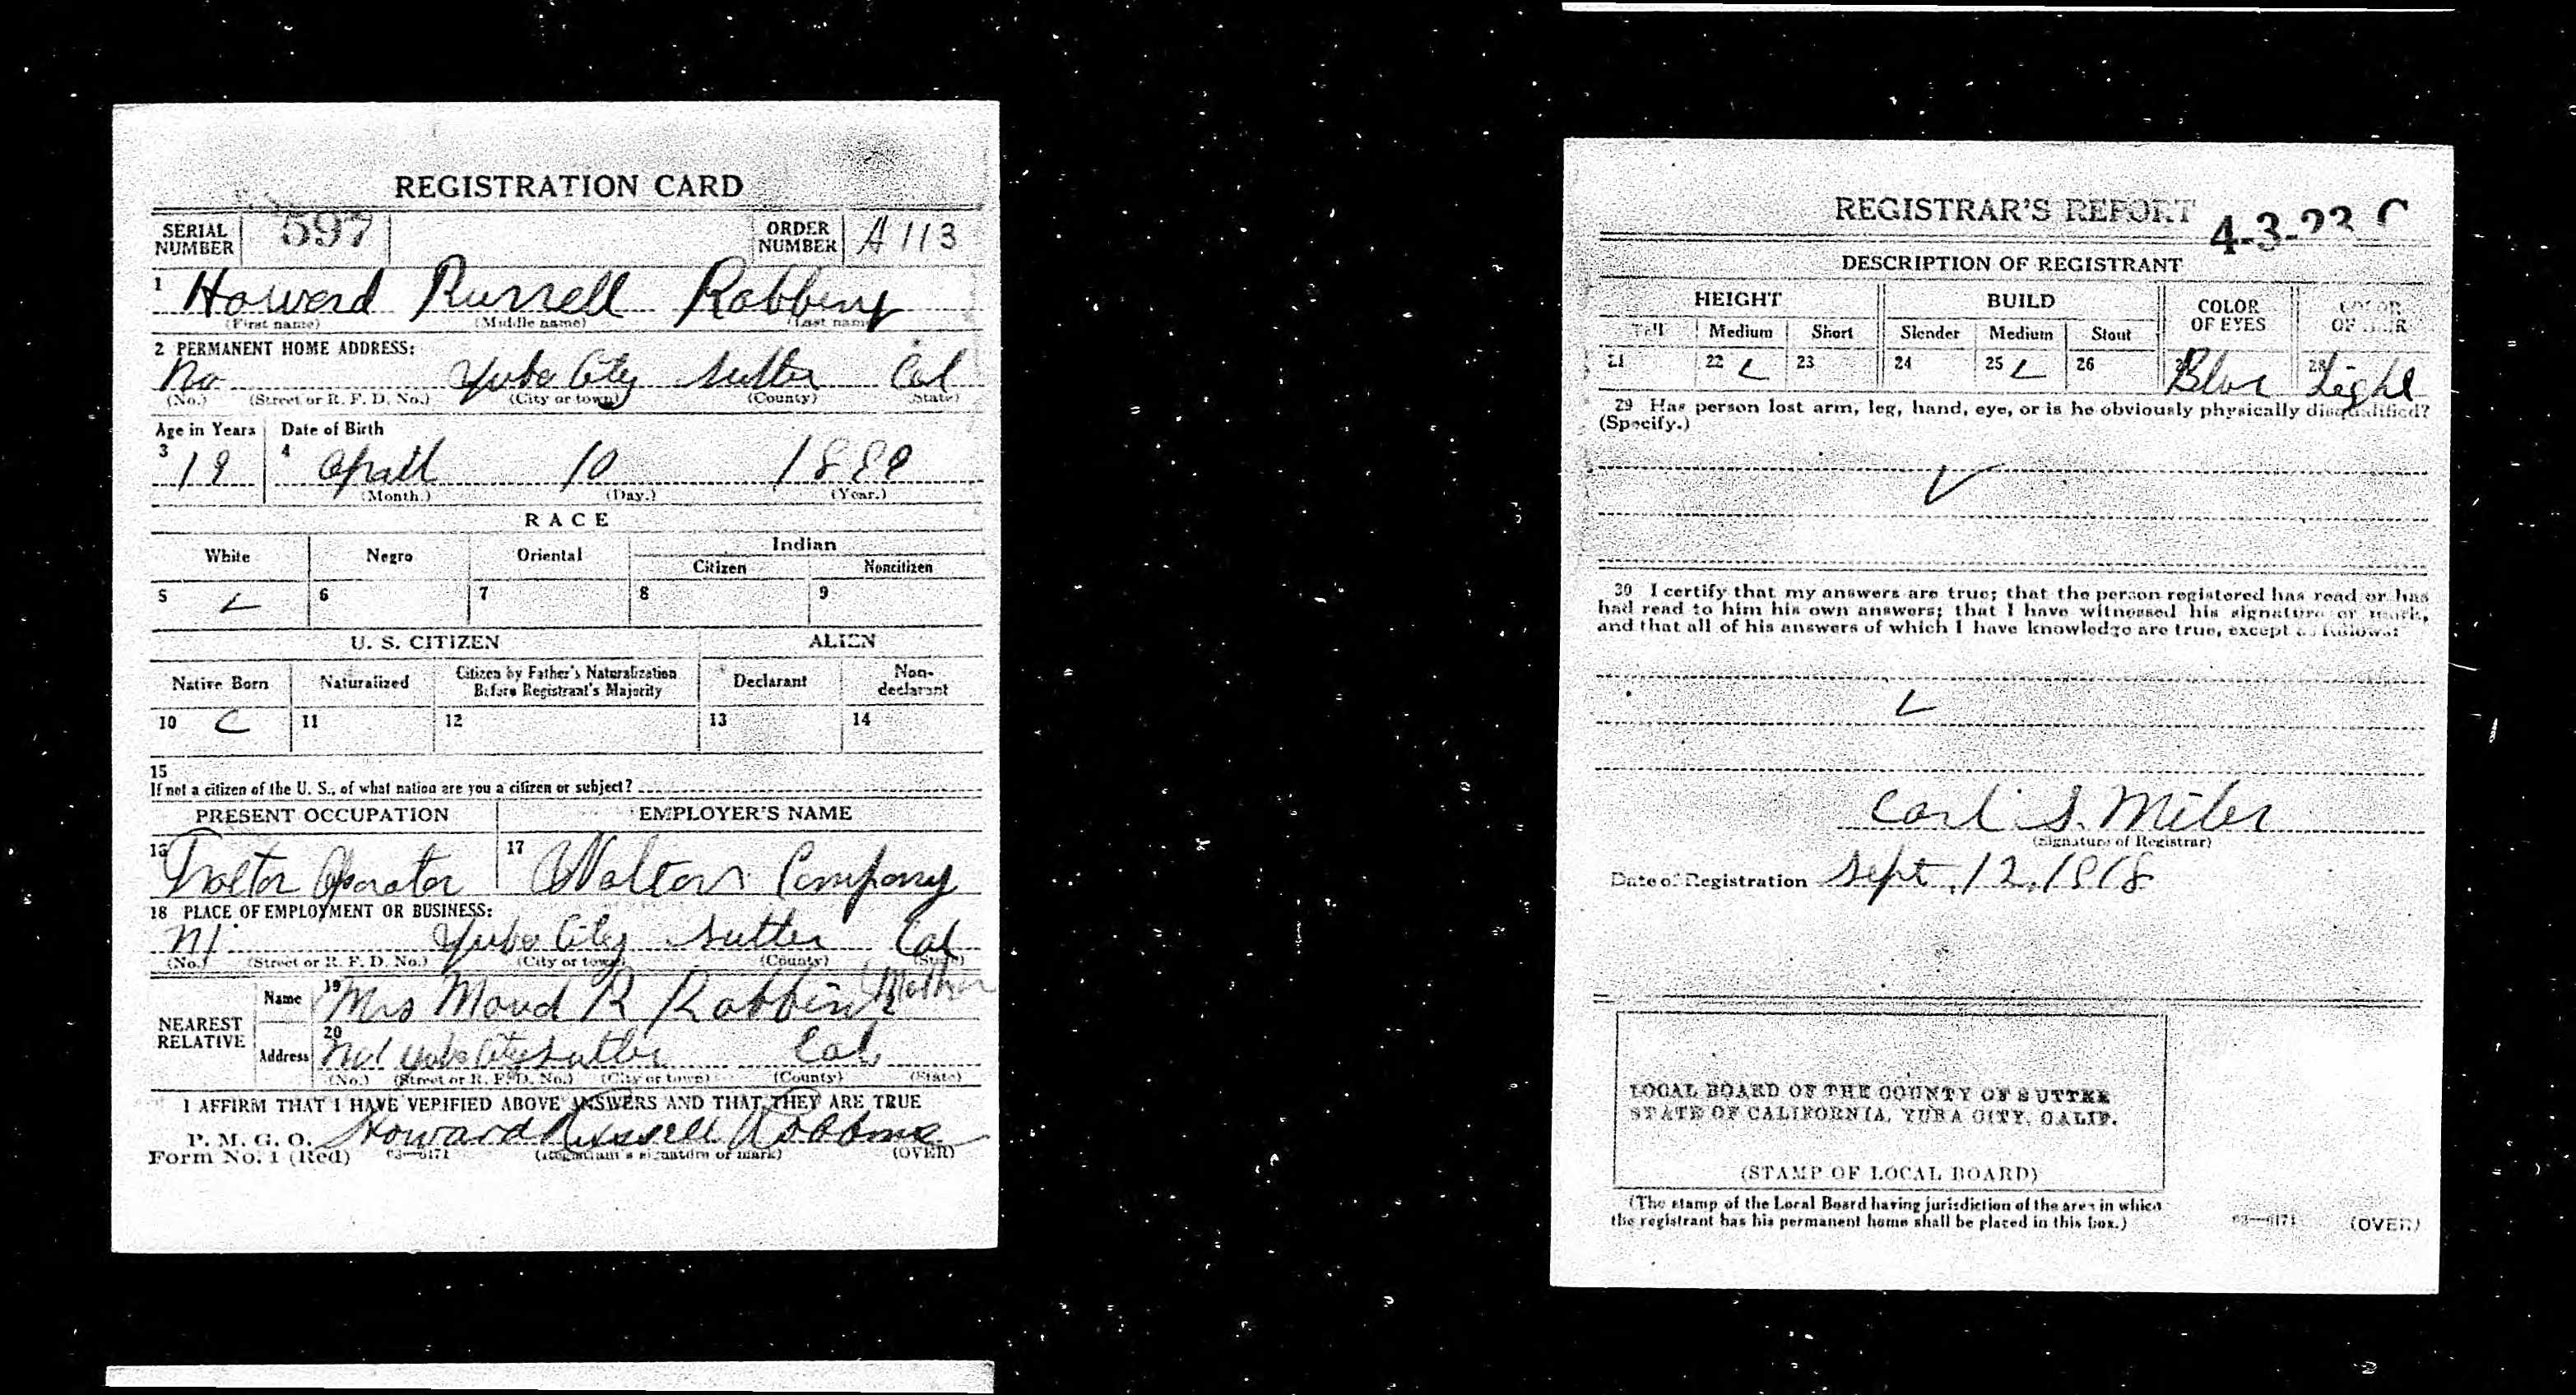 REGISTRATION CARD
SERIAL NUMBER 597 ORDER NUMBER A 113
1 Howard Russell Robbins
(First name) (Middle name) (Last name)
2 PERMANENT HOME ADDRESS:
No Yuba City Sutter Cal
(No.) (Street or R. F. D. No.) (City or town) (County) (State)
Age in Years Date of Birth
3 19 4 April 10 1899
(Month.) (Day.) (Year.)
RACE
White Negro Oriental Indian
Citizen Noncitizen
5 ✓ 6 7 8 9
U. S. CITIZEN ALIEN
Native Born Naturalized Citizen by Father's Naturalization Before Registrant's Majority Declarant Non-declarant
10 ✓ 11 12 13 14
15
If not a citizen of the U. S., of what nation are you a citizen or subject?
PRESENT OCCUPATION EMPLOYER'S NAME
16 Tractor Operator 17 Walton Company
18 PLACE OF EMPLOYMENT OR BUSINESS:
Yuba City Sutter Cal
(No.) (Street or R. F. D. No.) (City or town) (County) (State)
NEAREST RELATIVE Name 19 Mrs Maud R Robbins Mother
Address 20 Yuba City Sutter Cal
(No.) (Street or R. F. D. No.) (City or town) (County) (State)
I AFFIRM THAT I HAVE VERIFIED ABOVE ANSWERS AND THAT THEY ARE TRUE
P. M. G. O. Howard Russell Robbins
Form No. 1 (Red) 03—6171 (Registrant's signature or mark) (OVER)
REGISTRAR'S REPORT 4-3-23 C
DESCRIPTION OF REGISTRANT
HEIGHT BUILD COLOR OF EYES COLOR OF HAIR
Tall Medium Short Slender Medium Stout
21 22 ✓ 23 24 25 ✓ 26 27 Blue 28 Light
29 Has person lost arm, leg, hand, eye, or is he obviously physically disqualified?
(Specify.)
✓
30 I certify that my answers are true; that the person registered has read or has
had read to him his own answers; that I have witnessed his signature or mark,
and that all of his answers of which I have knowledge are true, except as follows:
✓
Carl S. Miler
(Signature of Registrar)
Date of Registration Sept. 12, 1918
LOCAL BOARD OF THE COUNTY OF SUTTER
STATE OF CALIFORNIA, YUBA CITY, CALIF.
(STAMP OF LOCAL BOARD)
(The stamp of the Local Board having jurisdiction of the area in which
the registrant has his permanent home shall be placed in this box.)
03—6171 (OVER)